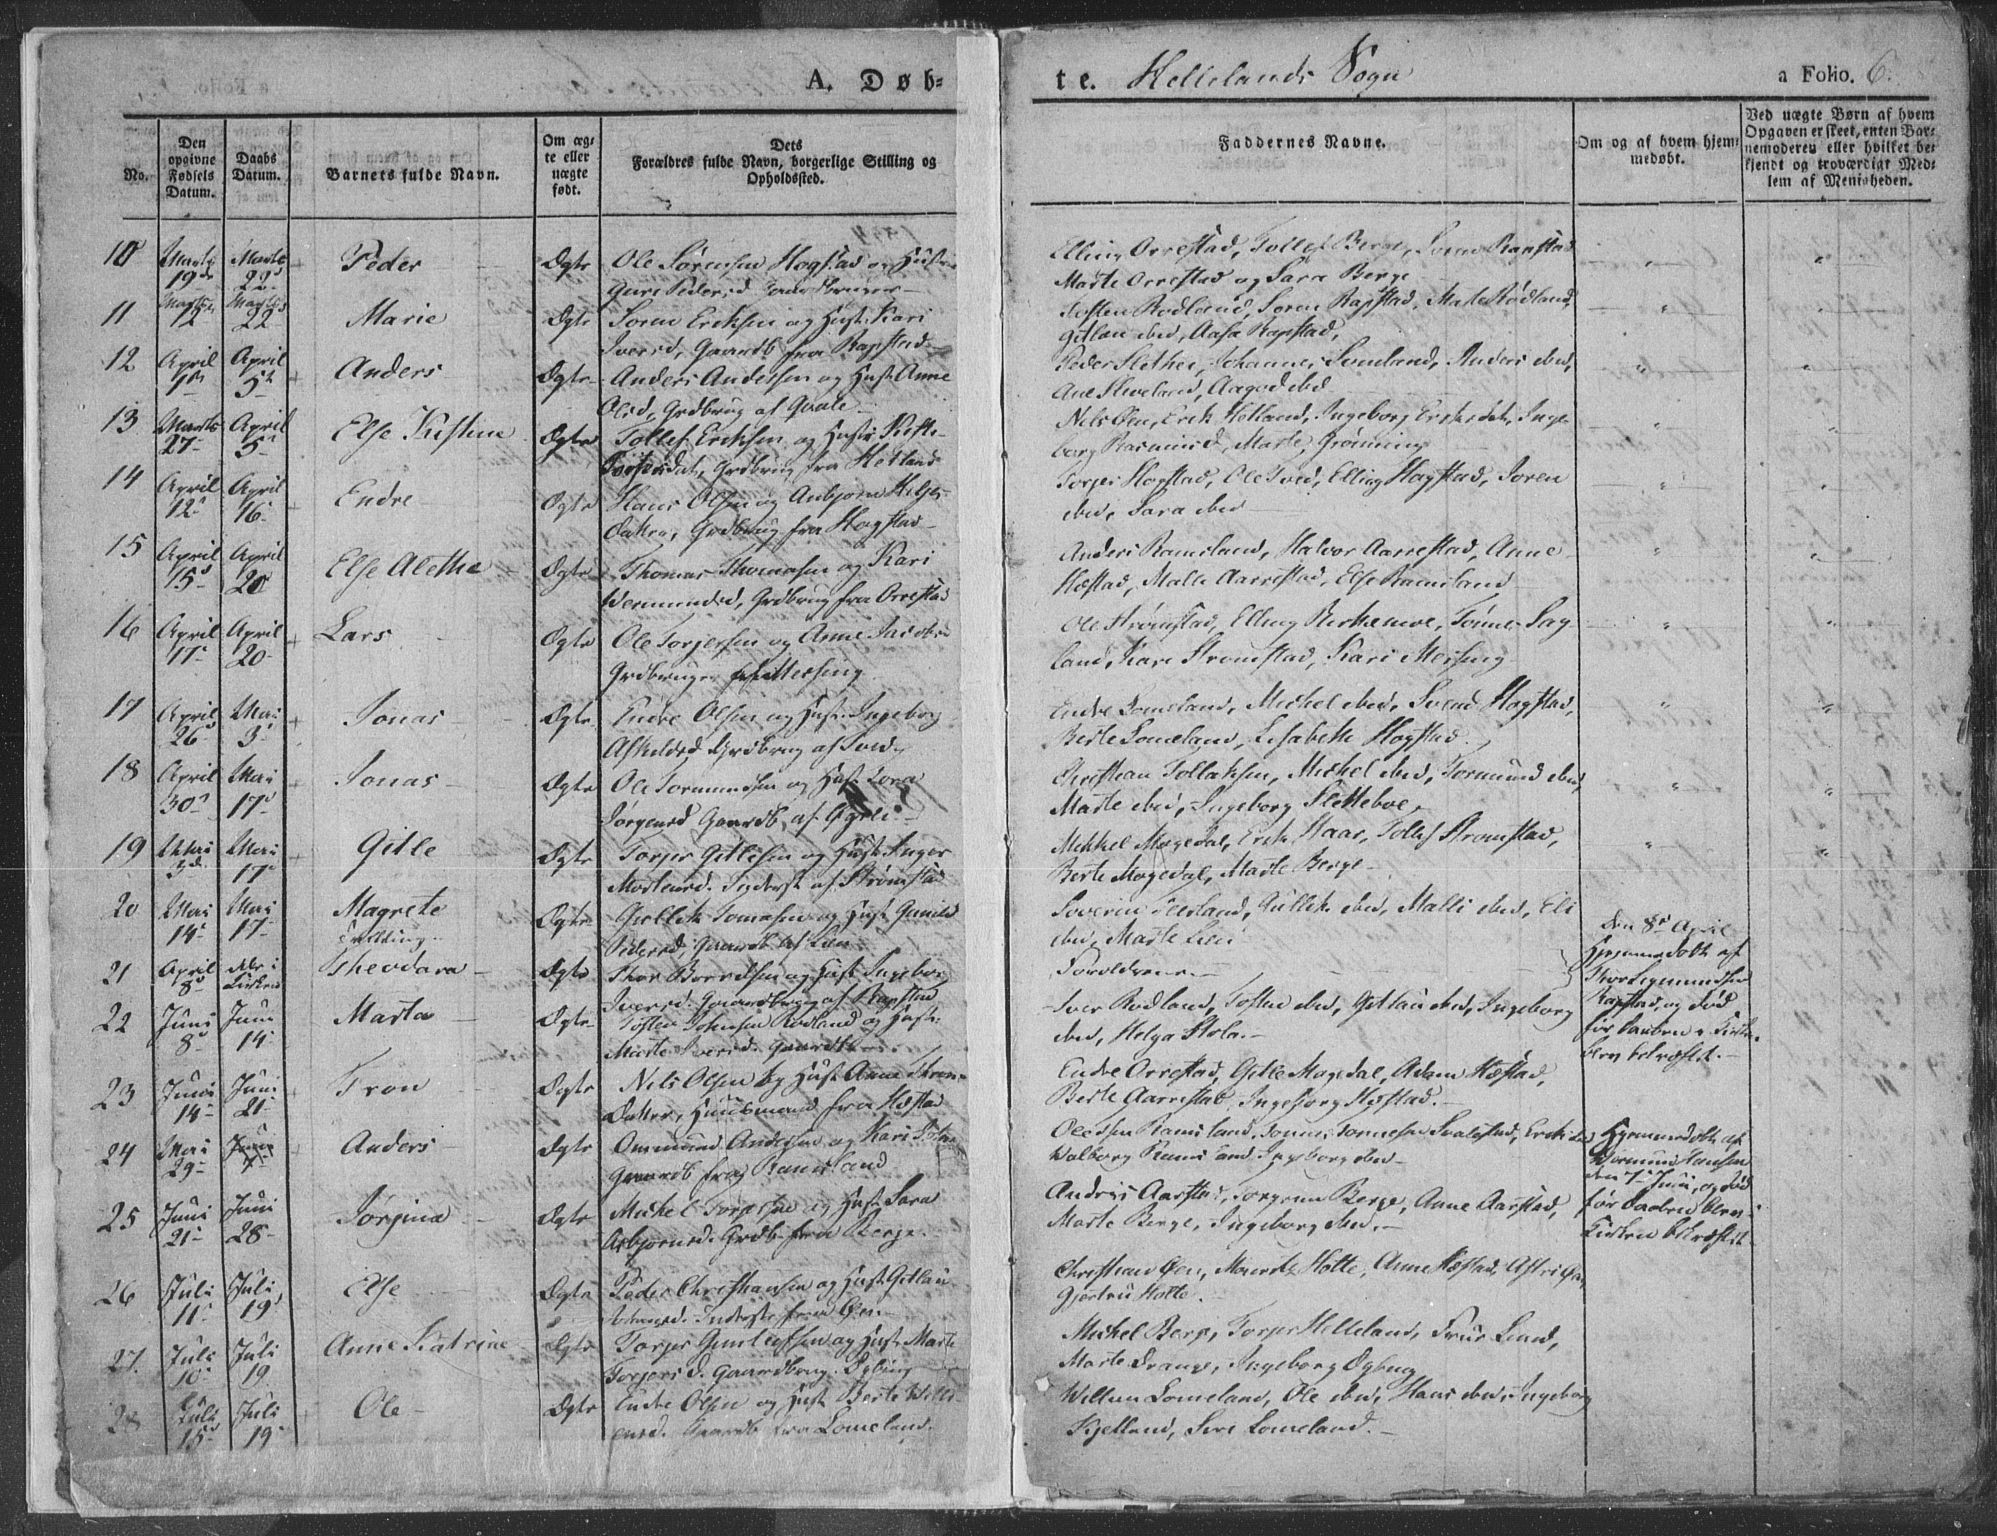 A. Døb-
te. Hellelands Sogn
a Folio. 6.
No.
Den opgivne Fødsels Datum.
Daabs Datum.
Barnets fulde Navn.
Om ægte eller uægte født.
Dets Forældres fulde Navn, borgerlige Stilling og Opholdssted.
Faddernes Navne.
Om og af hvem hjemmedøbt.
Ved uægte Børn af hvem Opgaven er skeet, enten Barnemoderen eller hvilket bekjendt og troværdigt Medlem af Menigheden.
10 Marts 19de Marts 22d Peder Ægte Ole Sørensen Hogstad og Hustru
Guri Pedersd Gaardbruger
Elling Orrestad, Tollef Berge, Soren Rapstad
Marte Orrestad og Sara Berge
11 Martii 12 Martii 22 Marie Ægte Soren Eriksen og Hust. Kari
Iversd, Gaardb fra Rapstad
Tosten Rodland, Soren Rapstad, Marte Rødland,
Gitlau ibid, Aasa Rapstad,
12 April 1st April 5t Anders Ægte Anders Andersen og Hust Anne
Olsd, Grdbrug af Qvale
Peder Slethei, Johannes Lomeland, Anders ibid,
Ane Sleveland, Aagod ibid
13 Marts 27 April 5 Else Kistine Ægte Tollef Eriksen og Hustr Kisti
Torkisdat, Grdbrug fra Hetland
Nels Øen, Erik Hetland, Ingeborg Eriksdat, Inge
borg Rasmusd, Marte Grønning
14 April 12 April 16 Endre Ægte Hans Olsen og Anbjorn Helges
Datter, Grdbrug fra Hogstad
Torger Hogstad, Ole Tved, Elling Hogstad, Soren
ibid, Sara ibid
15 April 15d April 20 Else Alethe Ægte Thomas Thomasen og Kari
Vermundsd, Grdbrug fra Orrestad
Anders Ramsland, Halvor Aarrestad, Anne
Hæstad, Malle Aarrestad, Else Ramsland
16 April 17 April 20 Lars Ægte Ole Torjersen og Anne Jacobsd
Grdbruger fra Messing
Ole Strømstad, Elling Birkemoe, Tonnes Sag
land, Kari Stromstad, Kari Messing
17 April 26 Mai 3 Jonas Ægte Endre Olsen og Hust. Ingeborg
Askildsd Grdbrug af Tved
Endre Lomeland, Mickel ibid, Svend Hogstad,
Berte Lomeland, Lisabeth Hogstad.
18 April 30 Mai 17d Jonas Ægte Ole Tormundsen og Hust Tora
Jørgensd Gaardb. af Gyrli
Christean Tollaksen, Mickel ibid, Tormund ibid,
Marte ibid, Ingeborg Sletteboe.
19 Mai 3d Mai 17 Gitle Ægte Torjer Gitlesen og Hust Inger
Mortensd. Inderst af Strømstad
Mikkel Mogedal, Erik Haar, Tollef Stromstad,
Berte Mogedal, Marte Berge
20 Mai 14 Mai 17 Magrete
Tvilling
Ægte Gullik Tomasen og Hust Gunild
Pedersd, Gaardb af Lien
Soveren Feersland, Gullik ibid, Malli ibid, Eli
ibid, Marte Lien
21 April 8d Theodora Ægte Thor Baardsen og Hust Ingeborg
Iversd. Gaardbrug af Rapstad
Foreldrene
Den 8d April
Hjemmedøbt af
Thor Sigmundsen
Rapstad, og død
før Daaben i Kirk
ken bekræftet.
22 Juni 8d Juni 14 Marta Ægte Tosten Johnsen Rodland og Hust.
Marte Iversd. Gaardb
Iver Rodland, Tosten ibid, Gitlau ibid, Ingeborg
ibid, Helga Stola.
23 Juni 14 Juni 21 Tron Ægte Nils Olsen og Hust Anne Thron
Datter, Huusmand fra Hæstad
Endre Orrestad, Gitle Mogedal, Adam Hæstad,
Berte Aarrestad, Ingeborg Hæstad.
24 Mai 29 Anders Ægte Ommund Andersen og Kari
Gaardb fra Ramsland
Walborg Ramsland, Ingeborg ibid
Hjemmedøbt af
Vermund Hansen
den 7d Juni, og død
før Daaben blev i
Kirken bekræftet
25 Juni 21 Juni 28 Jørgina Ægte Mickel Tordsen og Hust Sara
Asbjornsd. Grdb. fra Berge.
Andreis Aarstad, Torgrem Berge, Anne Aarstad,
Marte Berge, Ingeborg ibid.
26 Juli 11 Juli 19 Else Ægte Peder Christiansen og Hust Gitlau
Johnsd. Inderste fra Øen
Christian Øen, Mourits Hotte, Anne Hæstad, Astri Øen,
Gjertru Hotte.
27. Juli 10 Juli 19 Anne Katrine Ægte Torjer Guntleifsen og Hust Marte
Torjersd. Gaardbrug. Ogbing
Mickel Berge, Torjer Helleland, Frue Lund,
Marte Drange, Ingeborg Ogbing
28 Juli 15d Juli 19 Ole Ægte Endre Olsen og Hust Berte Will
emsd. Gaardb fra Lomeland.
Willum Lomeland, Ole ibid, Hans ibid, Ingeborg
Kjelland, Siri Lomeland.